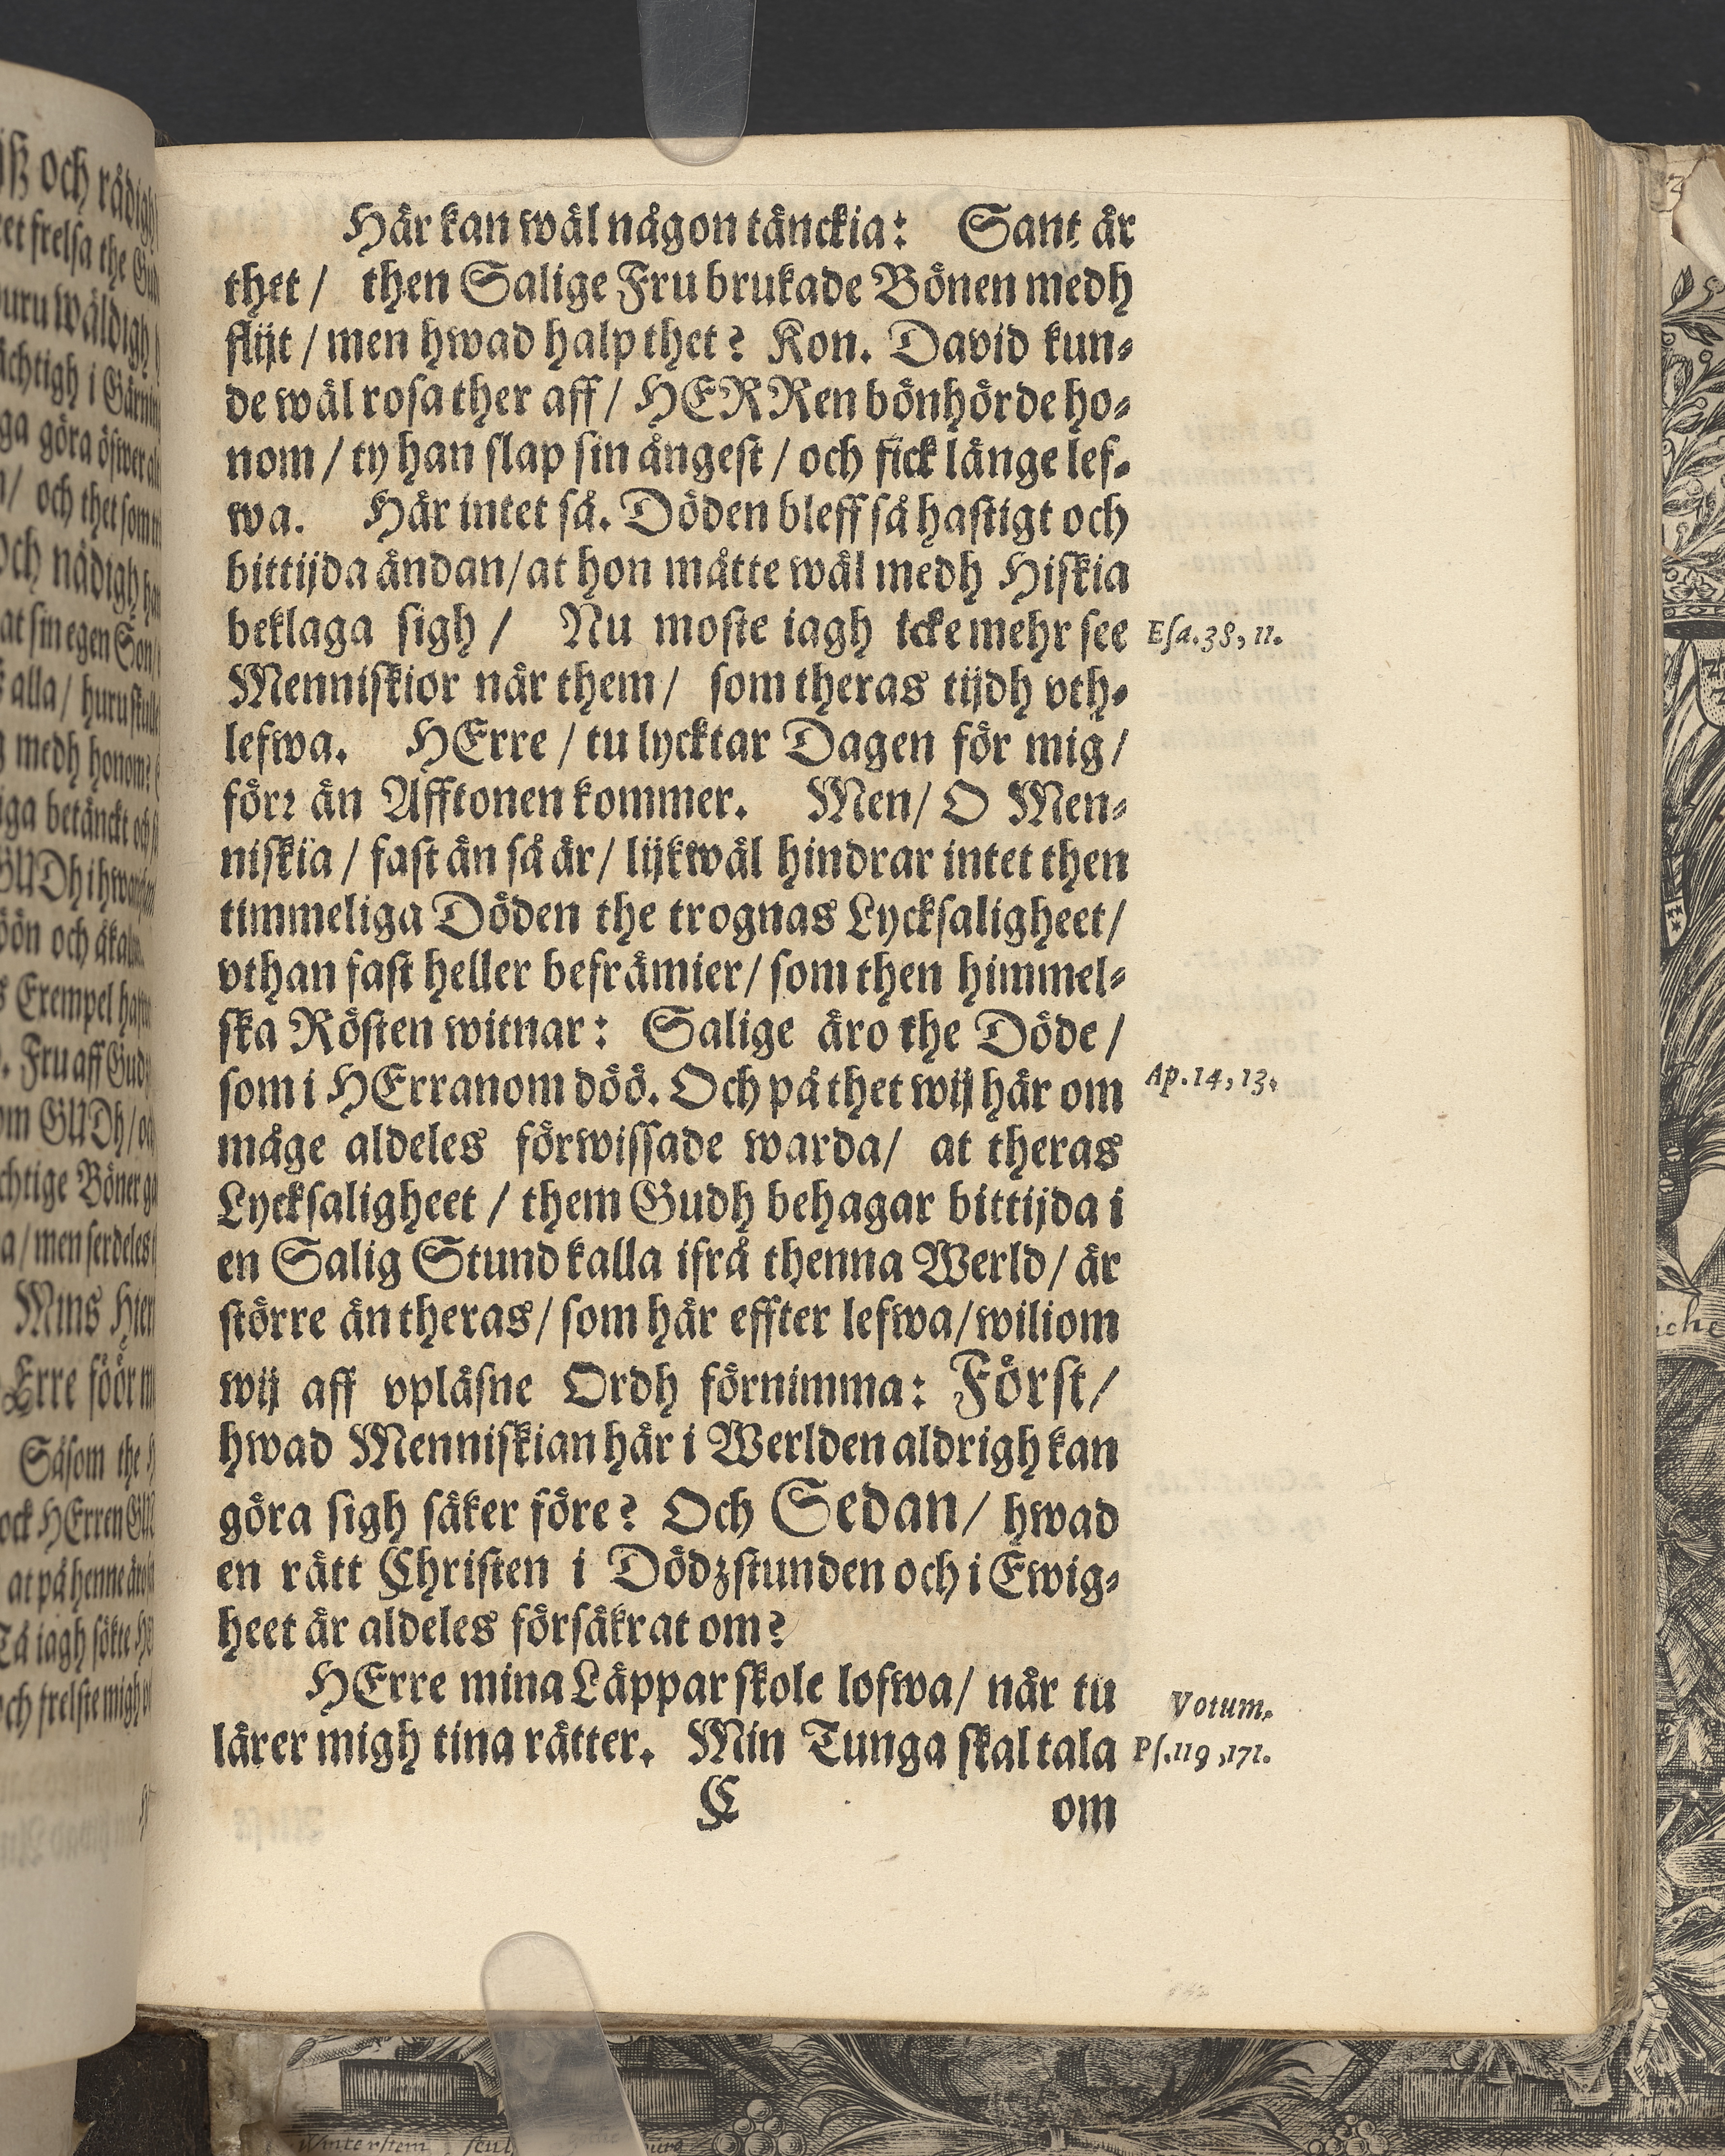 Här kan wäl någon tänckia: Sant är
thet / then Salige Fru brukade Bönen medh
flijt / men hwad halp thet? Kon. David kun-
de wäl rosa ther aff / HERRen bönhörde ho-
nom / ty han slap sin ångest / och fick länge lef-
wa. Här intet så. Döden bleff så hastigt och
bittijda ändan / at hon måtte wäl medh Hiskia
beklaga sigh / Nu moste iagh icke mehr see
Esa. 38, 11.
Menniskior när them / som theras tijdh vth-
lefwa. HErre / tu lycktar Dagen för mig /
förr än Afftonen kommer. Men / O Men-
niskia / fast än så är / lijkwäl hindrar intet then
timmeliga Döden the trognas Lycksaligheet /
vthan fast heller befrämier / som then himmel-
ska Rösten witnar: Salige äro the Döde /
som i HErranom döö. Och på thet wij här om
Ap. 14, 13.
måge aldeles förwissade warda / at theras
Lycksaligheet / them Gudh behagar bittijda i
en Salig Stund kalla ifrå thenna Werld / är
större än theras / som här effter lefwa / wiliom
wij aff vpläsne Ordh förnimma: Först /
hwad Menniskian här i Werlden aldrigh kan
göra sigh säker före? Och Sedan / hwad
en rätt Christen i Dödzstunden och i Ewig-
heet är aldeles försäkrat om?
HErre mina Läppar skole lofwa / när tu
Votum.
lärer migh tina rätter. Min Tunga skal tala
Ps. 119, 171.
C om